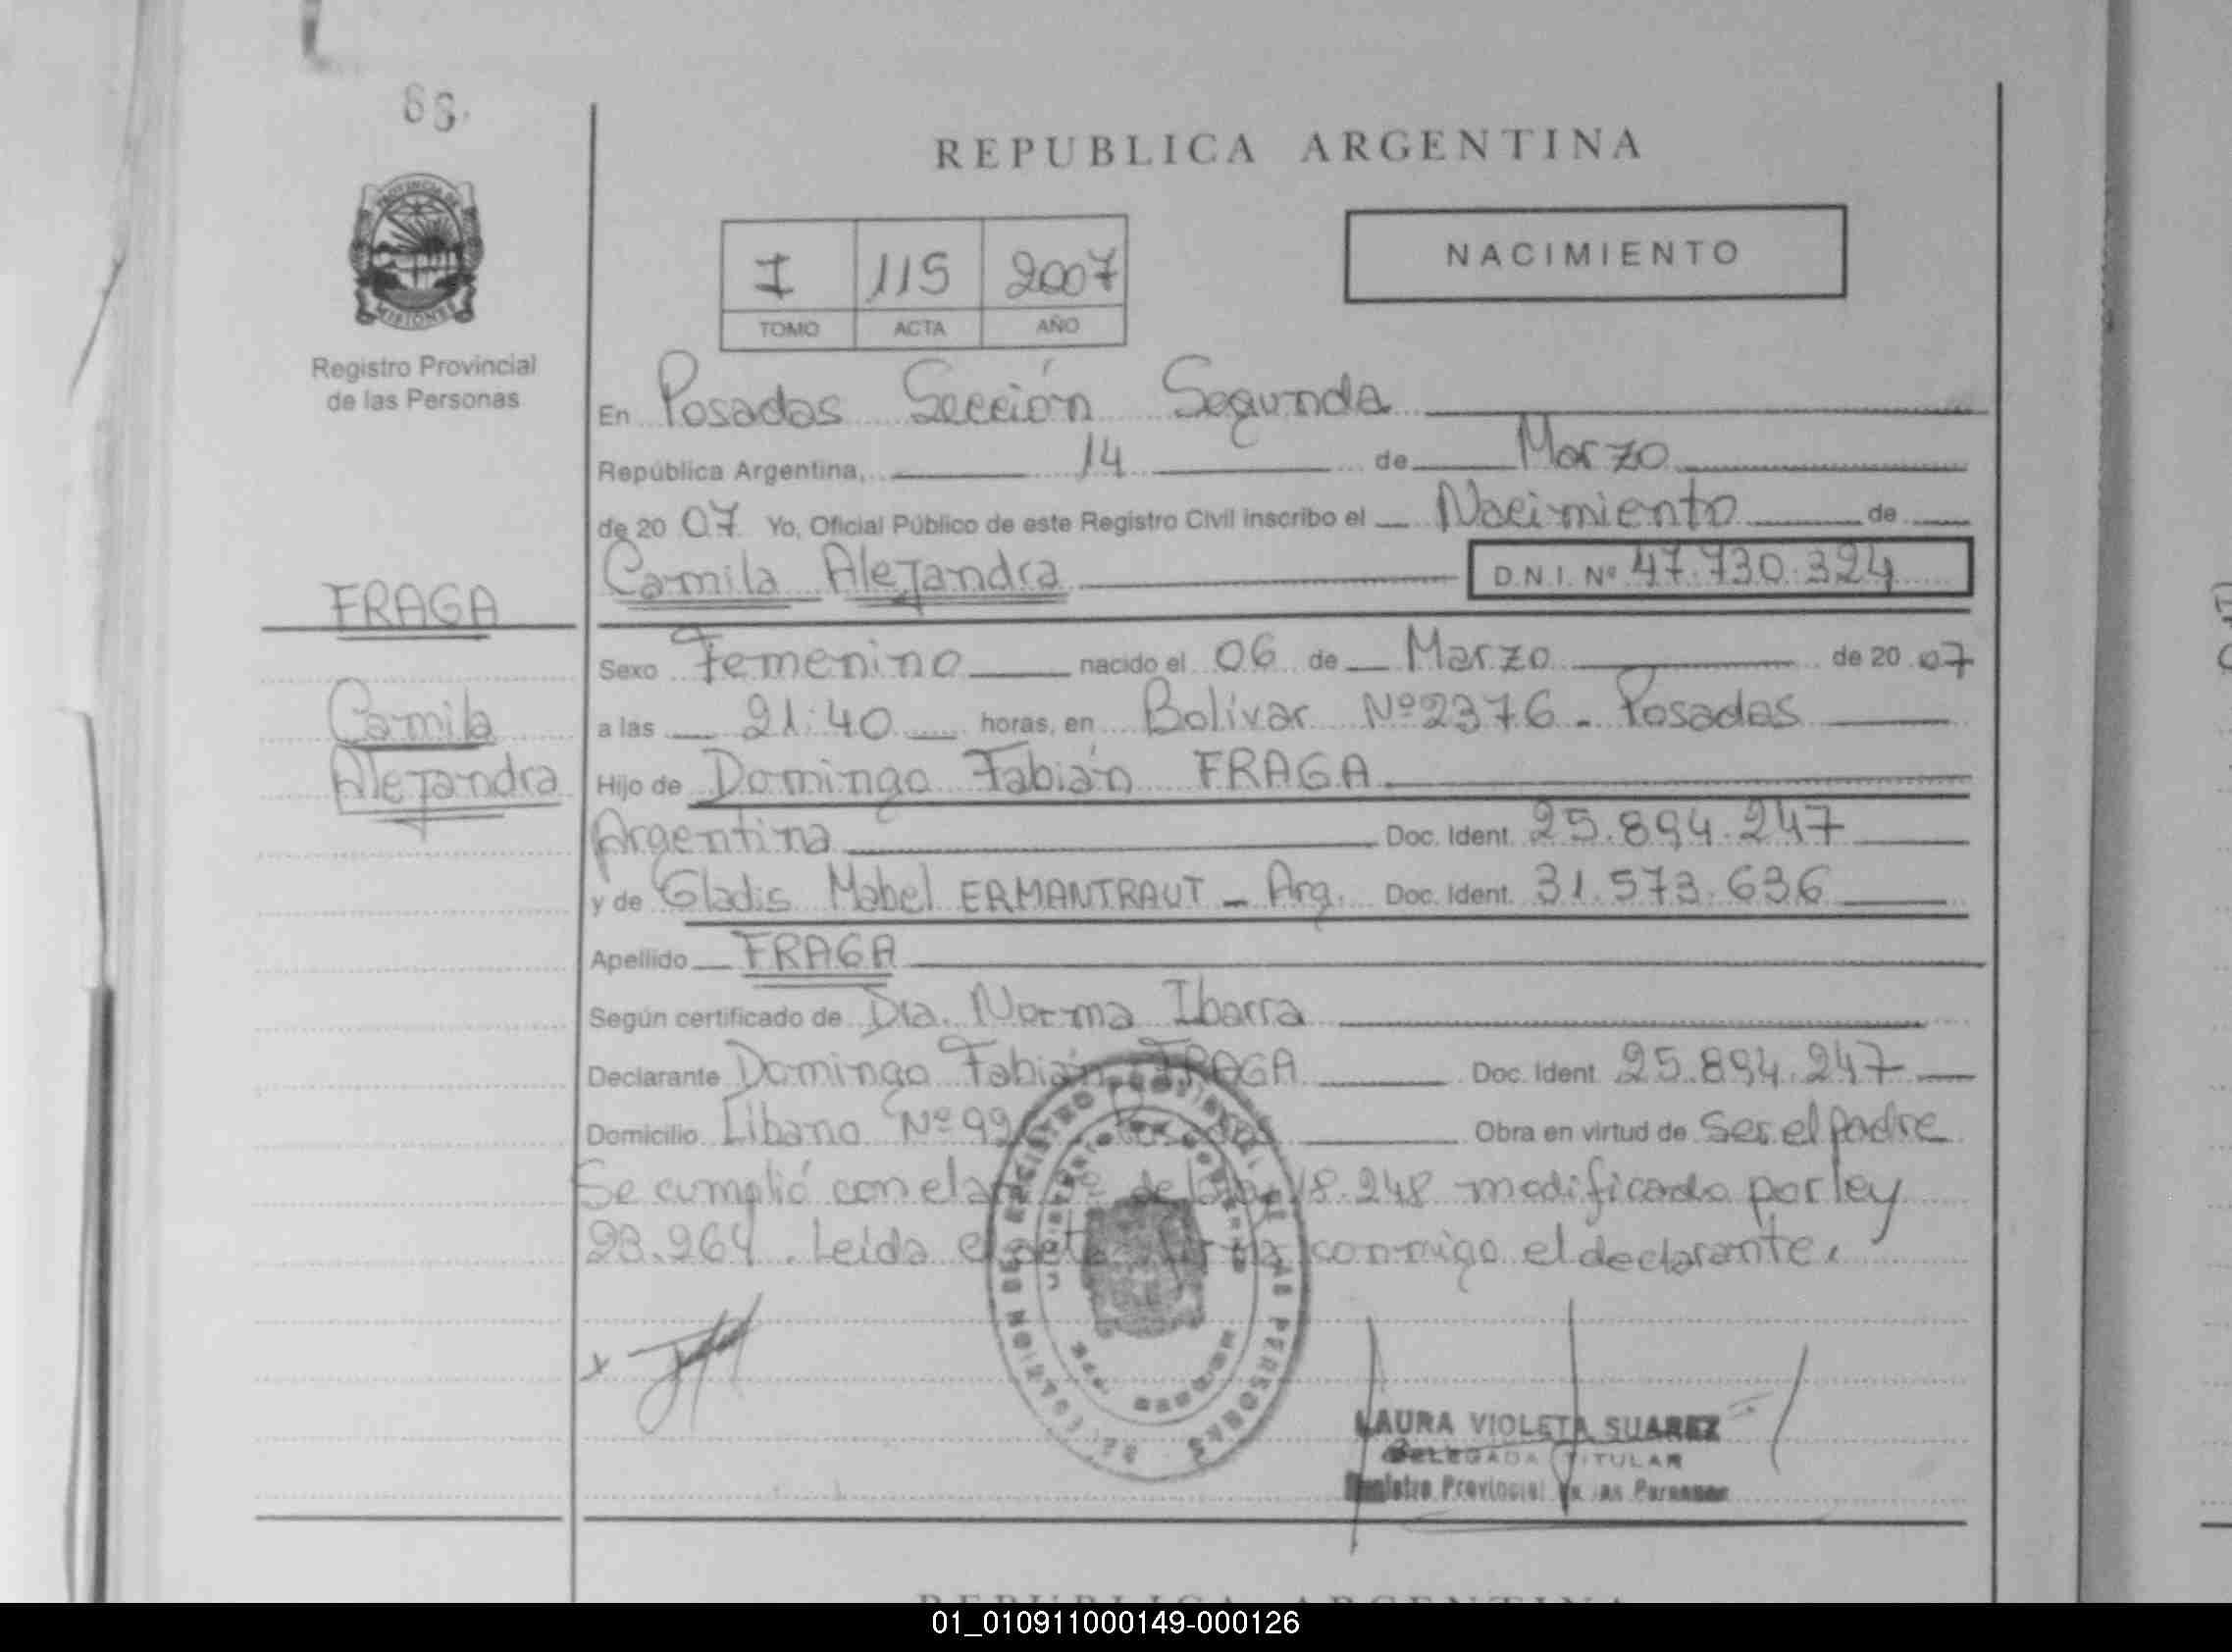 REPUBLICA ARGENTINA
PROVINCIA DE
MISIONES
Registro Provincial
de las Personas
I 115 2007
TOMO ACTA AÑO
NACIMIENTO
En Posadas Sección Segunda
República Argentina, 14 de Marzo
de 20 07 Yo, Oficial Público de este Registro Civil inscribo el Nacimiento de
Camila Alejandra D.N.I. Nº 47.730.324
FRAGA
Camila
Alejandra
Sexo Femenino nacido el 06 de Marzo de 20 07
a las 21:40 horas, en Bolívar Nº 2376 - Posadas
Hijo de Domingo Fabián FRAGA
Argentina Doc. Ident. 25.894.247
y de Gladis Mabel ERMANTRAUT - Arg. Doc. Ident. 31.573.636
Apellido FRAGA
Según certificado de Dra. Norma Ibarra
Declarante Domingo Fabián FRAGA Doc. Ident. 25.894.247
Domicilio Líbano Nº Obra en virtud de Ser el padre
Se cumplió con el de la ley 18.248 modificada por ley
23.264. Leída el acta firma conmigo el declarante.
x
LAURA VIOLETA SUAREZ
DELEGADA TITULAR
Registro Provincial de las Personas
REPUBLICA ARGENTINA
01_010911000149-000126